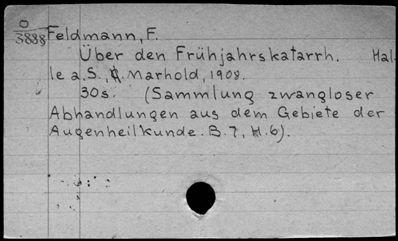 O
3888 Feldmann, F.
Über den Frühjahrskatarrh. Hal-
le a.S., C. Marhold, 1908.
30s. (Sammlung zwangloser
Abhandlungen aus dem Gebiete der
Augenheilkunde. B.7, H.6).